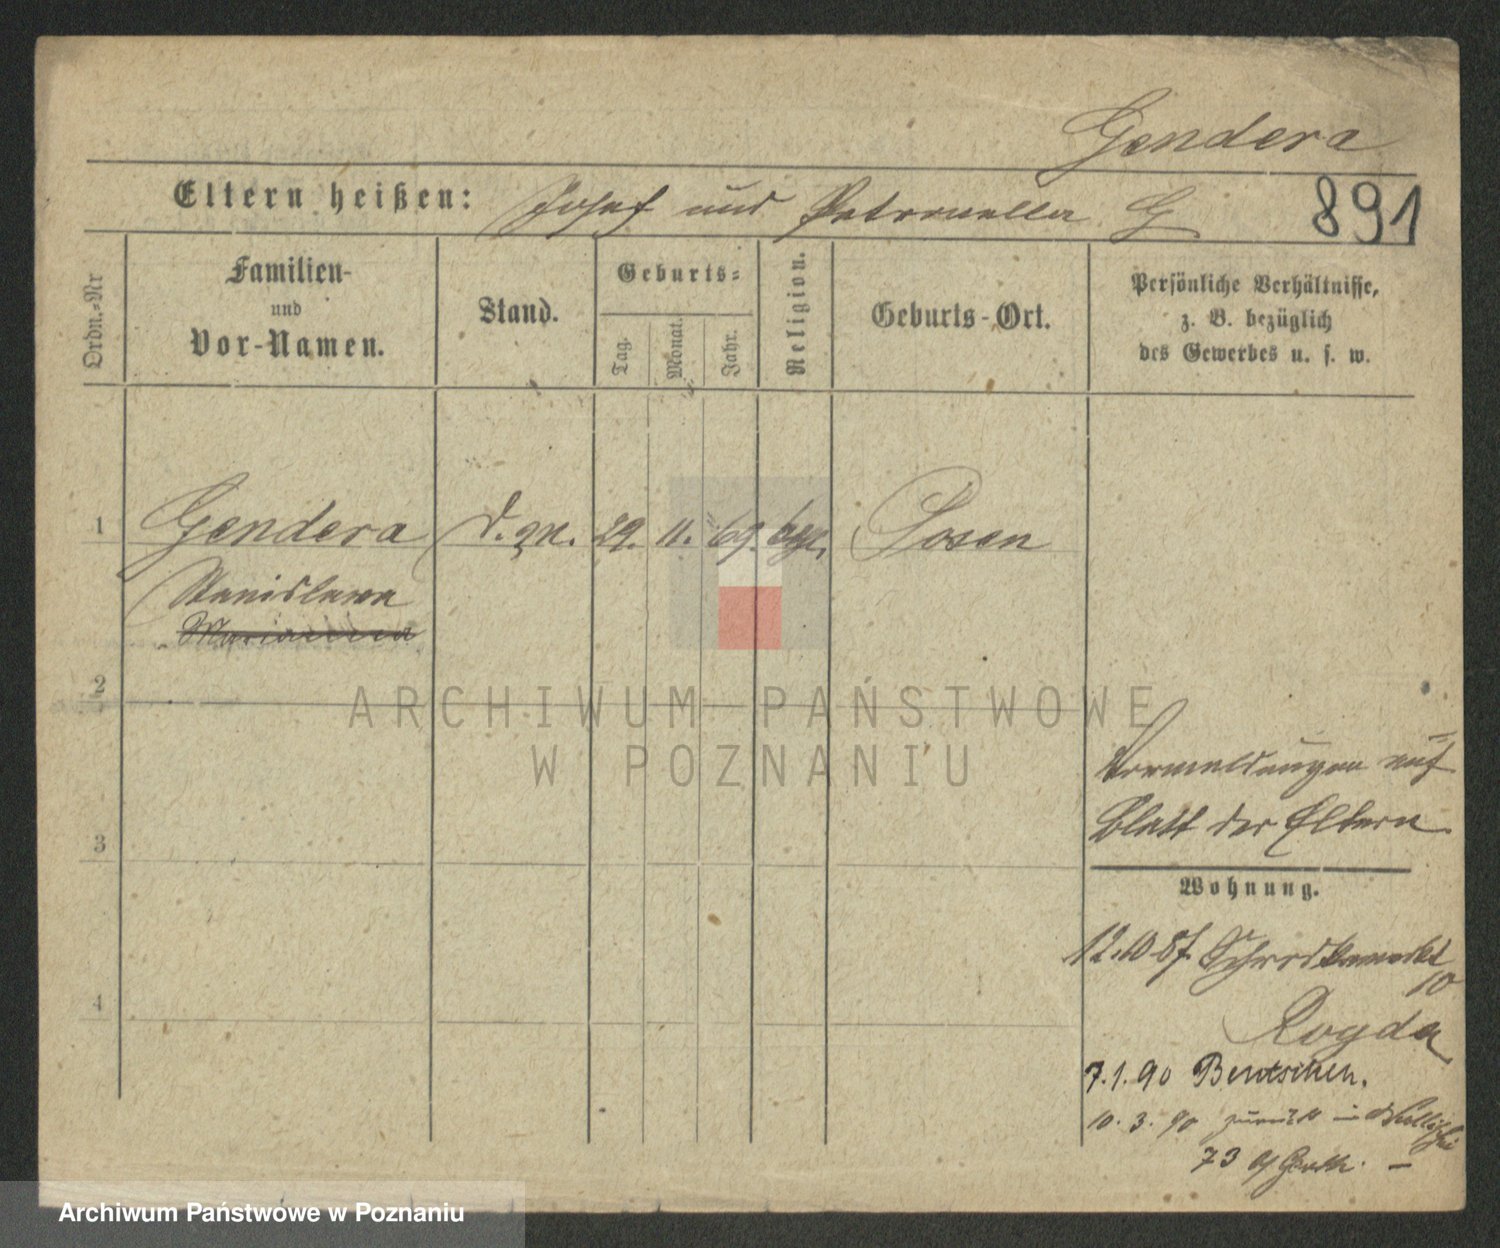 Gendera
Eltern heißen: Josef und Petronella G
891
Ordn.-Nr
Familien-
und
Vor-Namen.
Stand.
Geburts-
Tag.
Monat.
Jahr.
Religion.
Geburts-Ort.
Persönliche Verhältnisse,
z. B. bezüglich
des Gewerbes u. s. w.
1 Gendera 29. 11. 69. Posen
Stanislawa
Marianna
2
ARCHIWUM PAŃSTWOWE
W POZNANIU
Vormeldungen auf
Blatt der Eltern
3
Wohnung.
12.10.87. Schrodkamarkt
10
Rogda
4
7.1.90 Bentschen.
10. 3. 90 zurück in
73
Archiwum Państwowe w Poznaniu